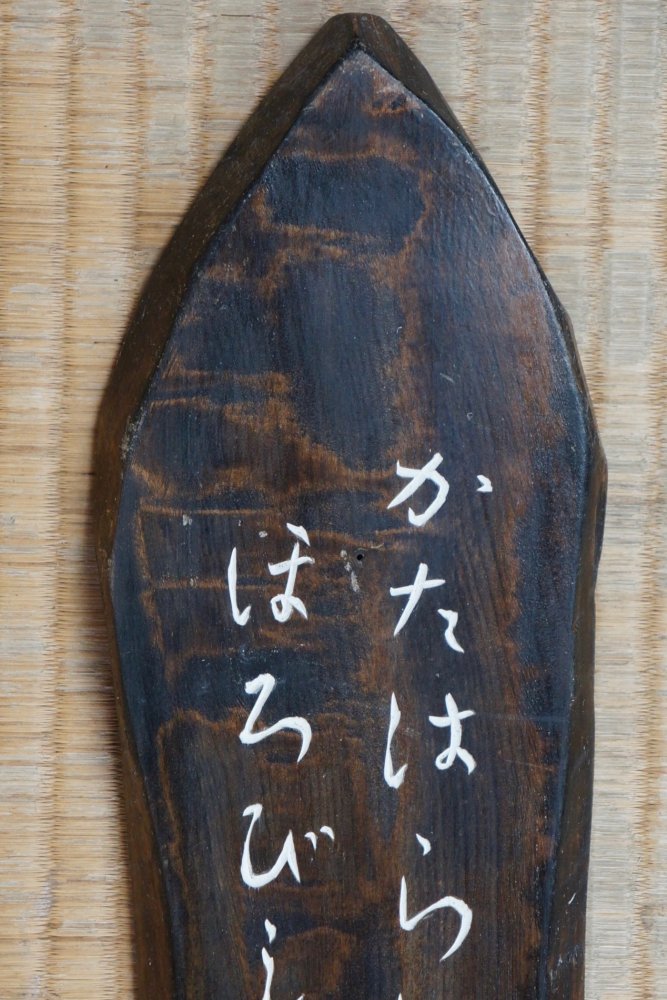 かたはら
ほろび